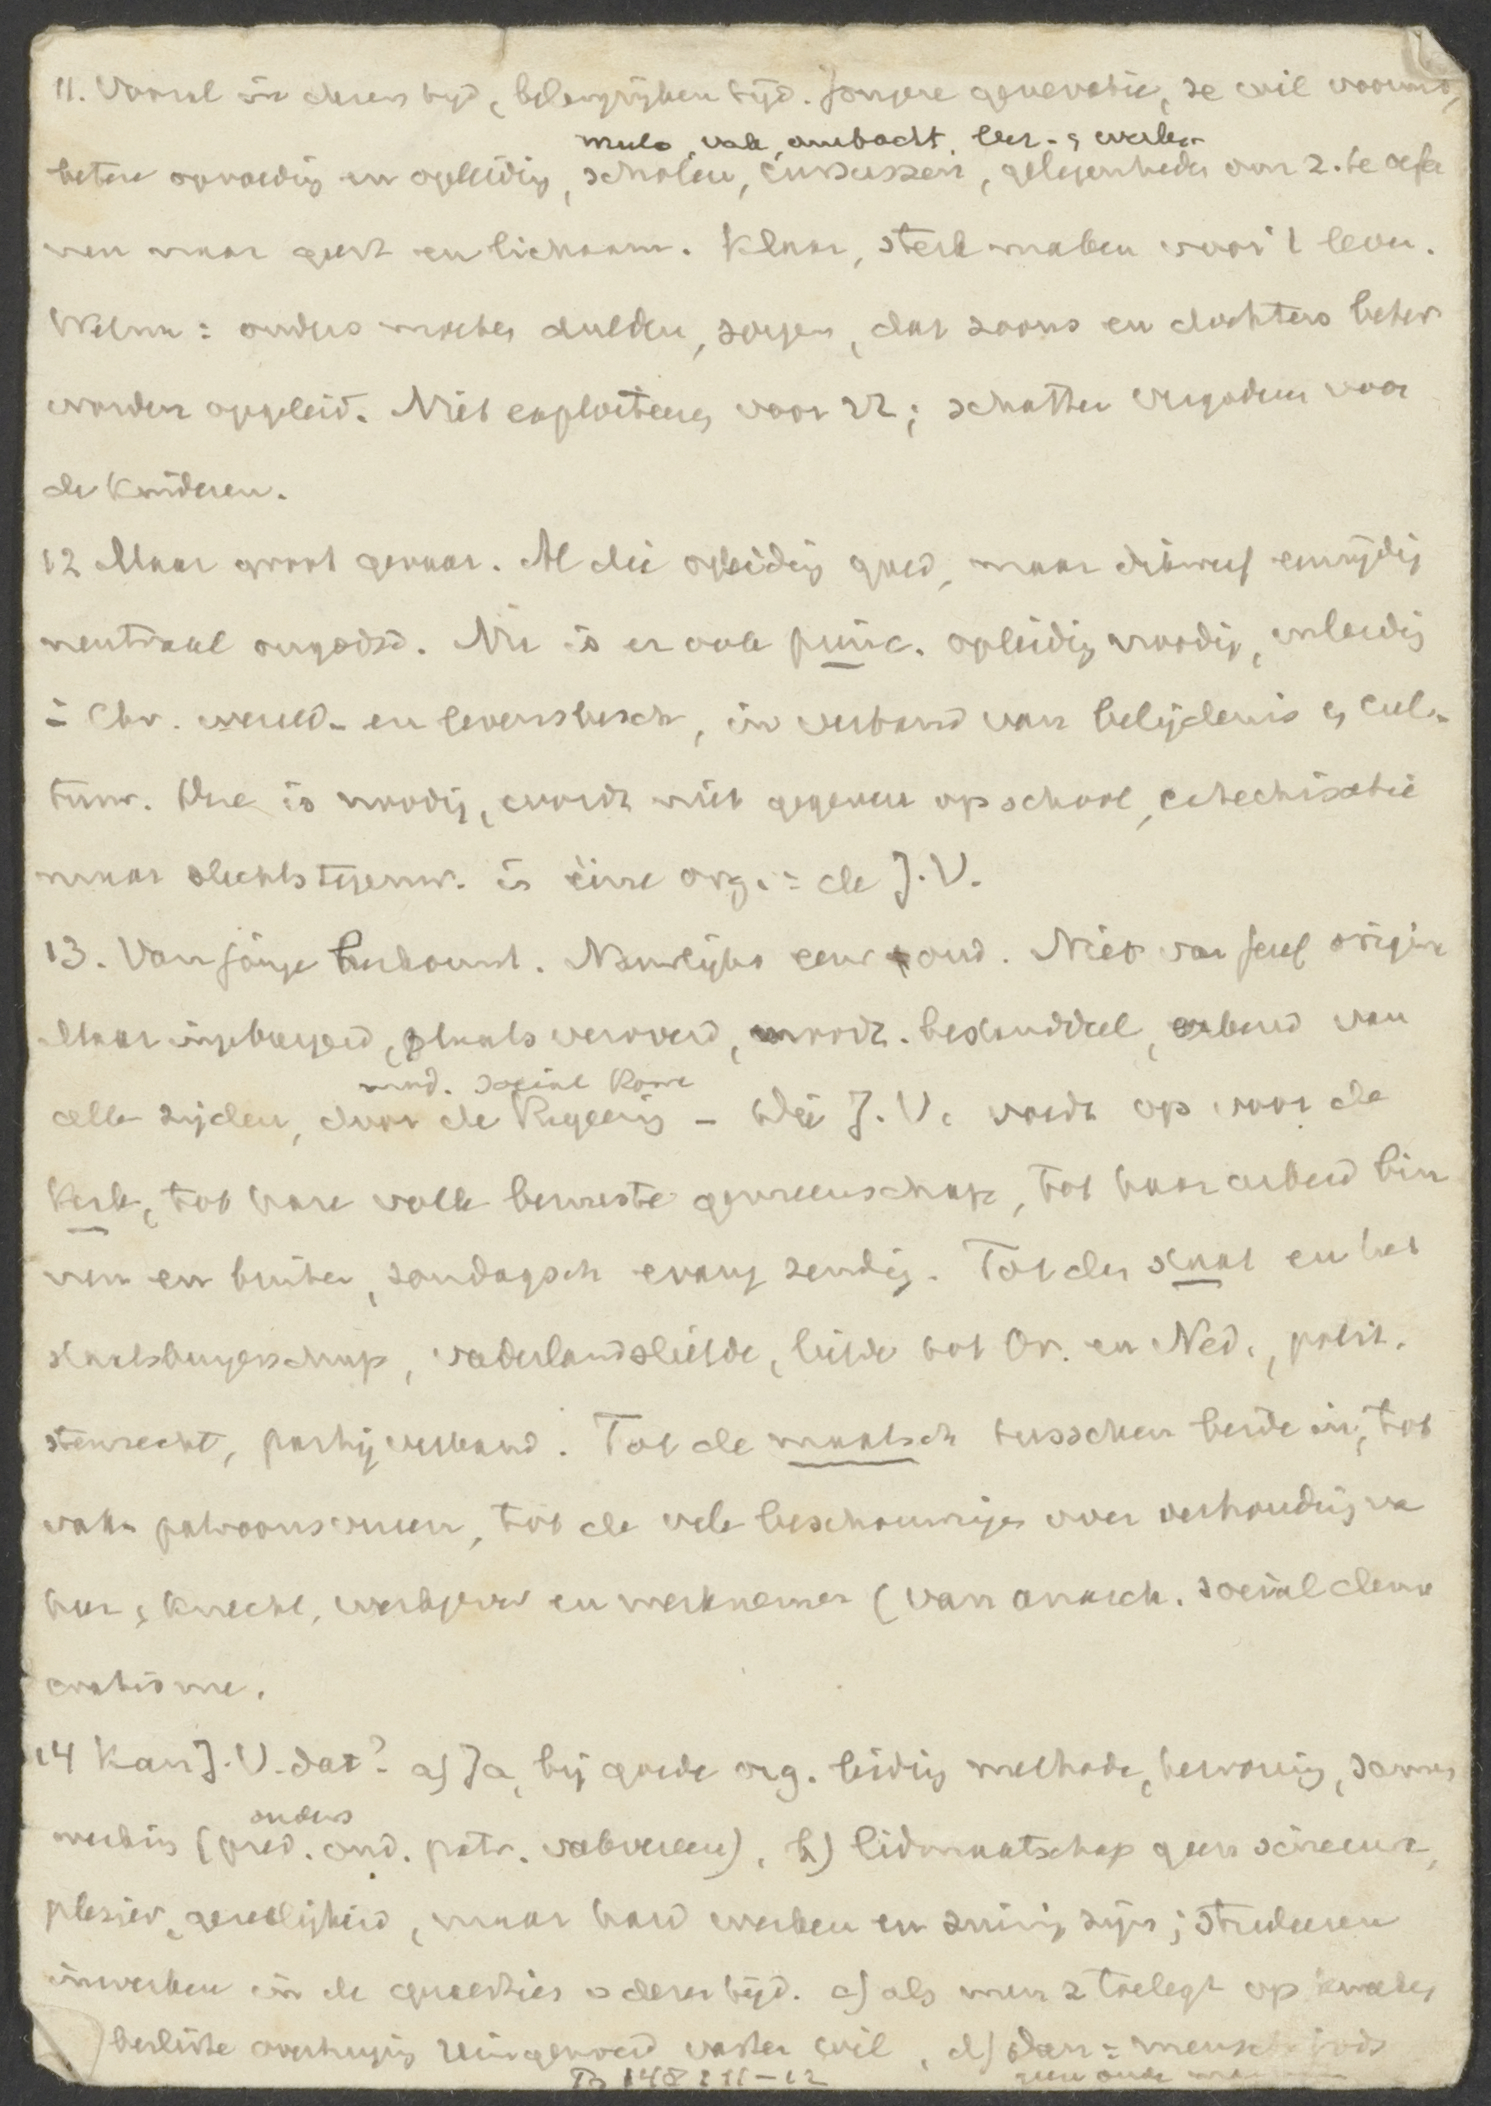 11. Vooral in dezen tijd, belangrijken tijd. Jongere generatie, ze wil vooruit,
mulo, vak, ambacht. leer- & werk-
betere opvoeding en opleiding, scholen, cursussen, gelegenheden om z. te oefe
nen naar geest en lichaam. Klaar, sterk maken voor 't leven.
Welnu = ouders moeten dulden, zorgen, dat zoons en dochters beter
worden opgeleid. Niet exploiteeren voor zich; schatten vergaderen voor
de kinderen.
12 Maar groot gevaar. Al die opleiding goed, maar dikwerf eenzijdig
neutraal ongodsd. Nu is er ook princ. opleiding noodig, inleiding
i Chr. wereld- en levensbesch, in verband van belijdenis & cul-
tuur. Die is noodig, wordt niet gegeven op school, catechisatie
maar slechts tegenw. is éene org. = de J.V.
13. Van jonge herkomst. Nauwelijks eeuw oud. Niet van Geref origine
Maar ingeburgerd, plaats veroverd, noodz. bestanddeel, erkend van
mod. sociaal Rome
alle zijden, door de Regeering - Die J.V. voedt op voor de
Kerk, tot hare volle bewuste gemeenschap, tot haar arbeid bin
nen en buiten, zondagsch evang zending. Tot den staat en het
staatsburgerschap, vaderlandsliefde, liefde tot Or. en Ned., polit.
stemrecht, partij verband. Tot de maatsch tusschen beide in, tot
vak- patroonsvereen, tot de vele beschouwingen over verhouding va
heer & knecht, werkgever en werknemer (van anarch. sociaal demo
cratisme.
14 Kan J.V. dat? a) Ja, bij goede org. leiding methode, bewaring, samen
ouders
werking (pred. oud. patr. vakvereen). b) lidmaatschap geen sinecure,
plezier, gezelligheid, maar hard werken en zuinig zijn; studeeren
inwerken in de quaesties v dezen tijd. c) als men z toelegt op kweeken
besliste overtuiging vasten wil, d) dan = mensch Gods
B 148 : 11-12
geen oude